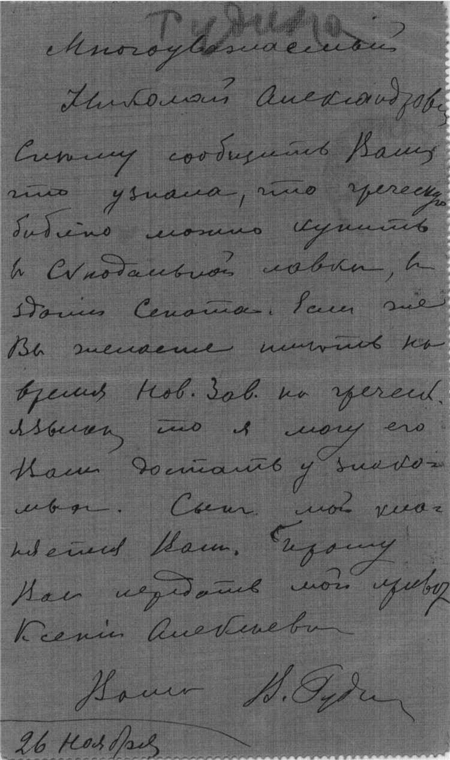 Гудина
Многоуважаемый
Николай Александрович
Спешу сообщить Вамъ
что узнала, что греческую
библію можно купить
въ Сѵнодальной лавкѣ, въ
зданіи Сената. Если же
Вы желаете имѣть на
время Нов. Зав. на греческ.
языкѣ, то я могу его
Вамъ достать у знако-
мых. Сынъ мой кла-
няется Вамъ. Прошу
Вас передать мой привѣт
Ксеніи Алексѣевнѣ
Ваша В. Гудин
26 ноября